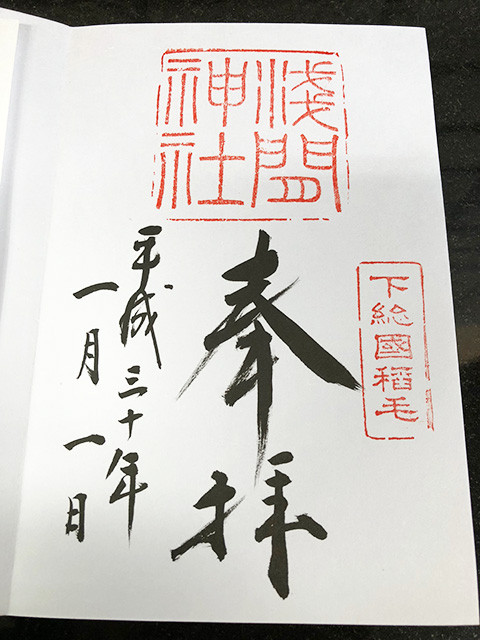 下総國稲毛
浅間
神社
奉拝
平成三十年
一月一日